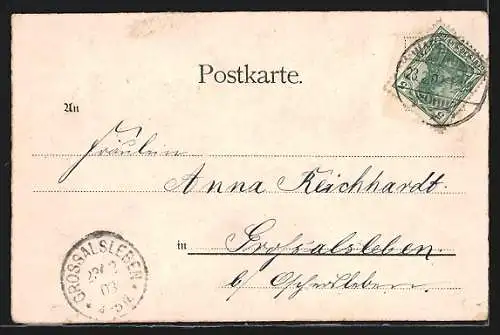 Postkarte.
An
Fräulein
Anna Reichhardt.
in Großalsleben
b/ Oschersleben.
GROSSALSLEBEN
2 03